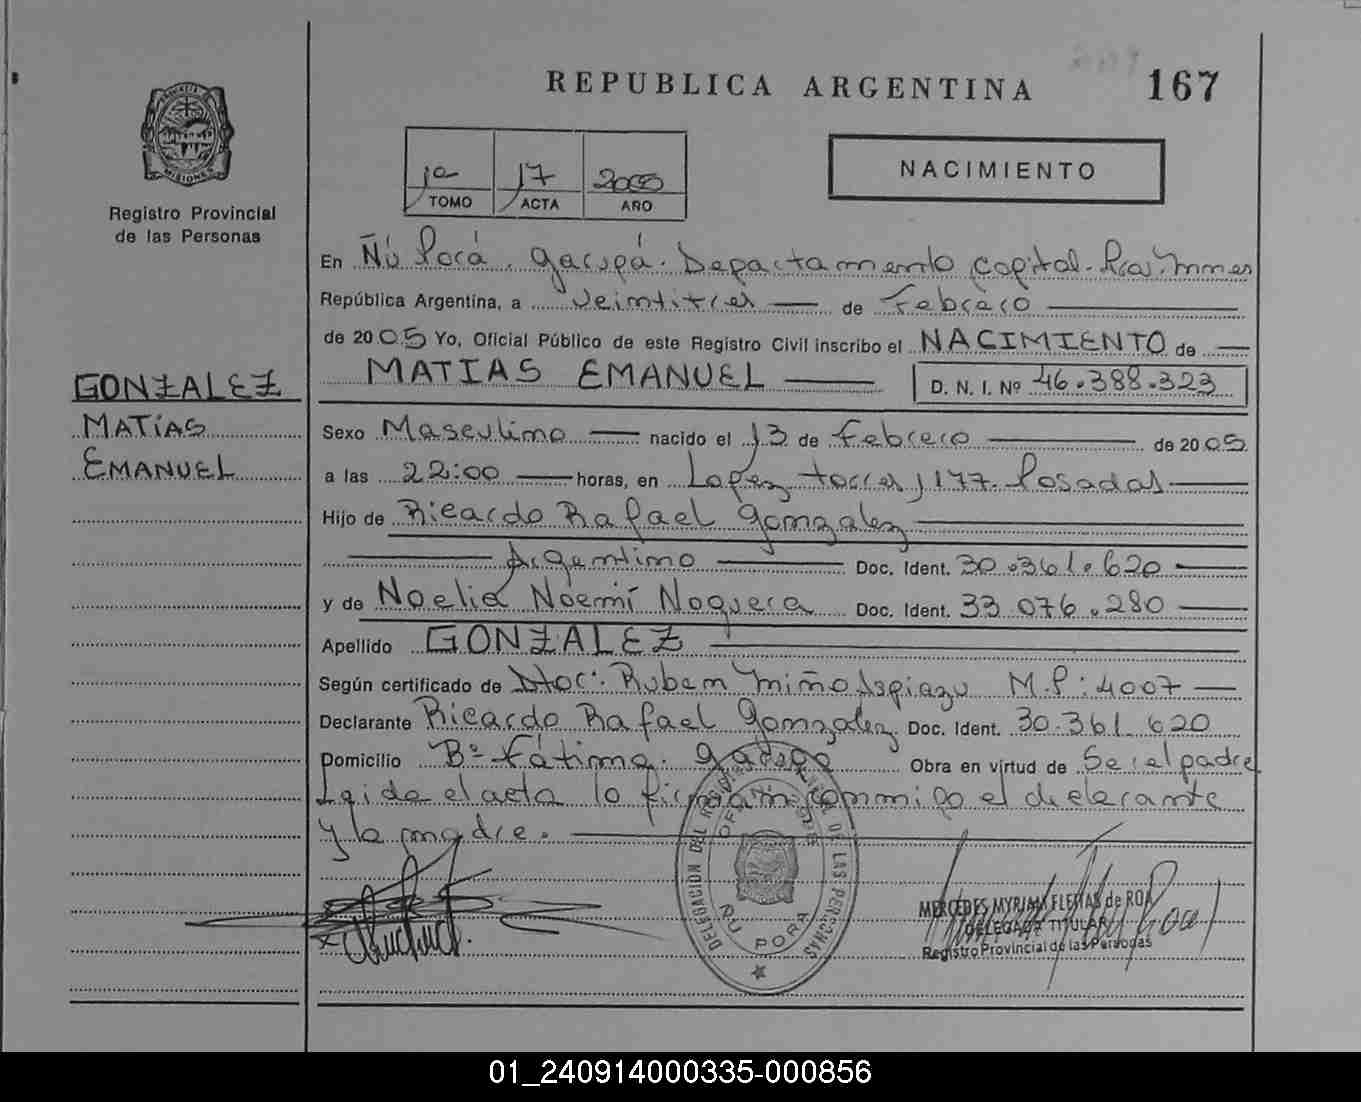 REPUBLICA ARGENTINA
167
MISIONES
Registro Provincial
de las Personas
1º 17 2005
TOMO ACTA AÑO
NACIMIENTO
En Ñú Porá. Garupá. Departamento Capital.
República Argentina, a veintitres de Febrero
de 2005 Yo, Oficial Público de este Registro Civil inscribo el NACIMIENTO de
MATIAS EMANUEL D. N. I. Nº 46.388.323
GONZALEZ
MATÍAS
EMANUEL
Sexo Masculino nacido el 13 de Febrero de 2005
a las 22:00 horas, en Lopez torres 1177. Posadas
Hijo de Ricardo Rafael Gonzalez
Argentino Doc. Ident. 30.361.620
y de Noelia Noemí Noguera Doc. Ident. 33.076.280
Apellido GONZALEZ
Según certificado de Dtor: Ruben Miño M.P: 4007
Declarante Ricardo Rafael Gonzalez Doc. Ident. 30.361.620
Domicilio Bº Fátima. Garupá Obra en virtud de Ser el padre
Leida el acta la firman conmigo el declarante
y la madre.
DELEGACIÓN DEL REGISTRO DE LAS PERSONAS
ÑU PORA
MERCEDES MYRIAM FLEITAS de ROA
DELEGADA TITULAR
Registro Provincial de las Personas
01_240914000335-000856